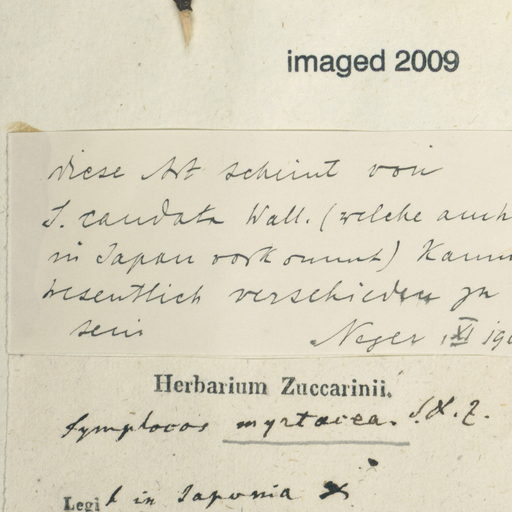 imaged 2009
diese Art scheint von
S. caudata Wall. (welche auch
in Japan vorkommt) kaum
wesentlich verschieden zu
sein Neger XI 190
Herbarium Zuccarinii.
Symplocos myrtacea. S. & Z.
Legit in Japonia